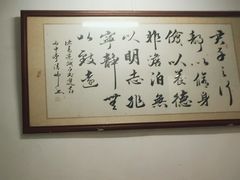 君子之行
靜以修身
儉以養德
非澹泊無
以明志非
寧靜無
以致遠